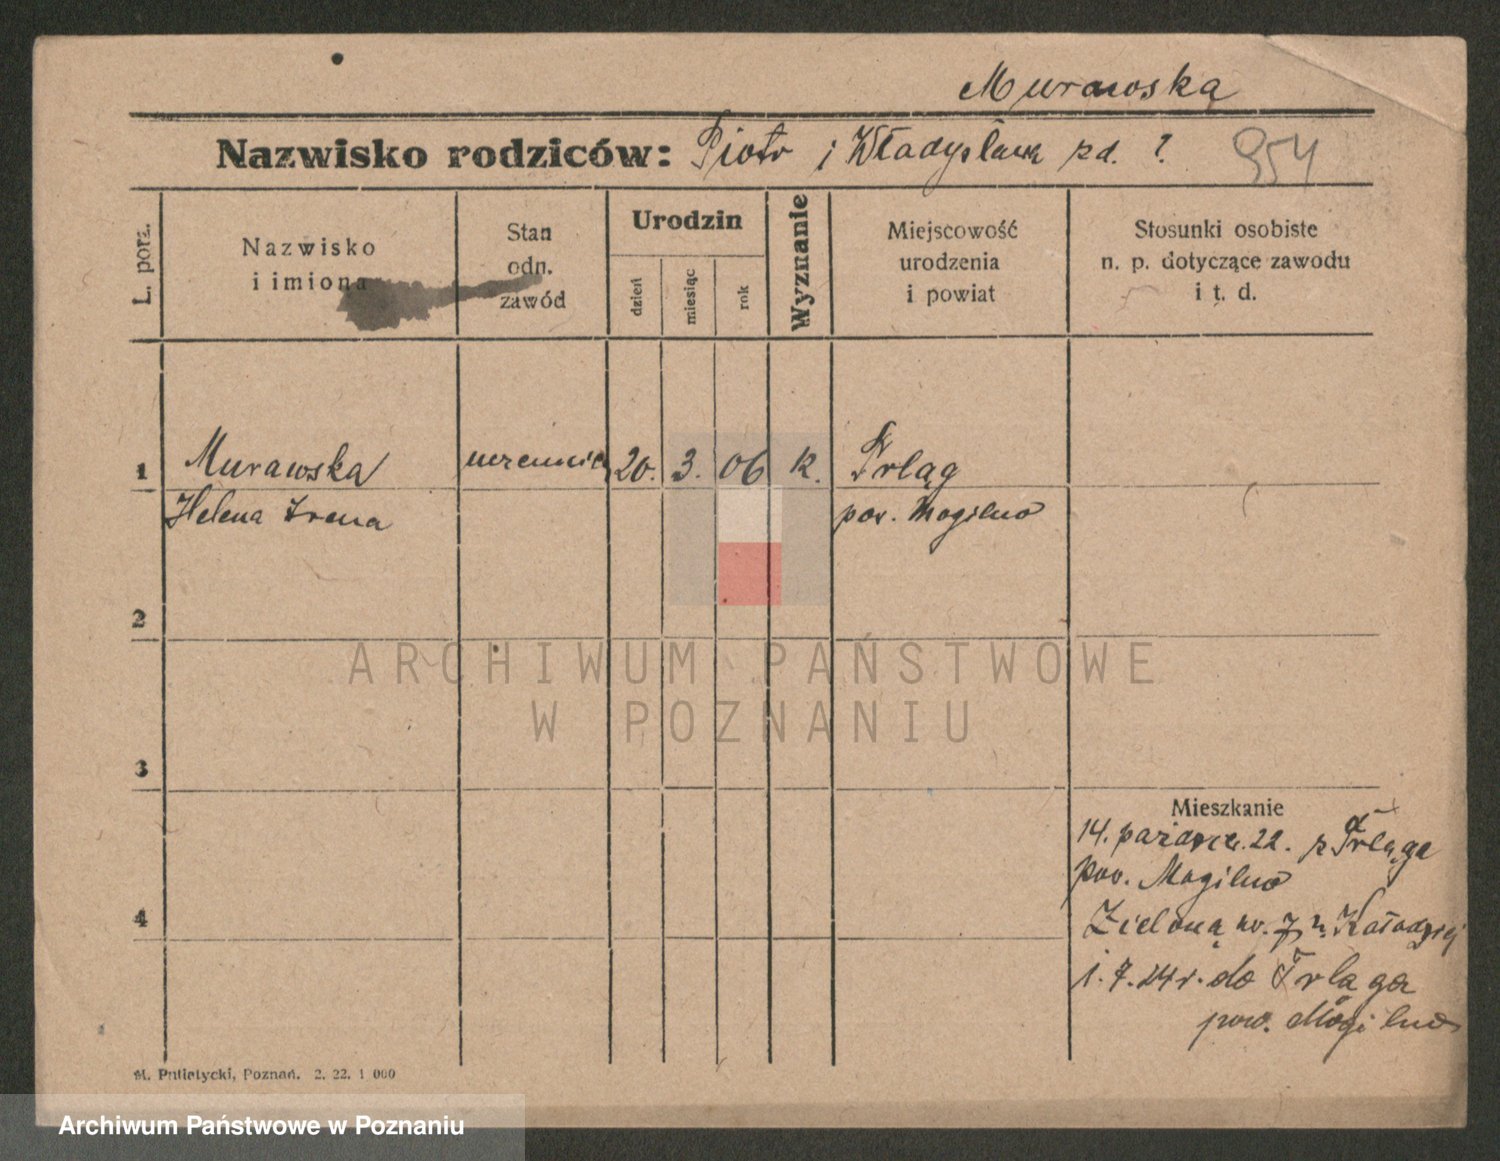 Murawska
Nazwisko rodziców: Piotr i Władysława zd. ? 954
L. porz.
Nazwisko
i imiona
Stan
odn.
zawód
Urodzin
dzień
miesiąc
rok
Wyznanie
Miejscowość
urodzenia
i powiat
Stosunki osobiste
n. p. dotyczące zawodu
i t. d.
1 Murawska uczennica 20. 3. 06 k. Trląg
Helena Irena pow. Mogilno
2
3
4
Mieszkanie
14. paźdz. 22. z Trląga
pow. Mogilno
Zieloną nr. 7 u. Kołodziej
1. 7. 24 r. do Trląga
pow. Mogilno
M. Putiatycki, Poznań. 2. 22. 1 000
ARCHIWUM PAŃSTWOWE
W POZNANIU
Archiwum Państwowe w Poznaniu